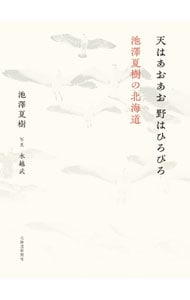 天はあおあお 野はひろびろ
池澤夏樹の北海道
池澤夏樹
写真 水越武
北海道新聞社